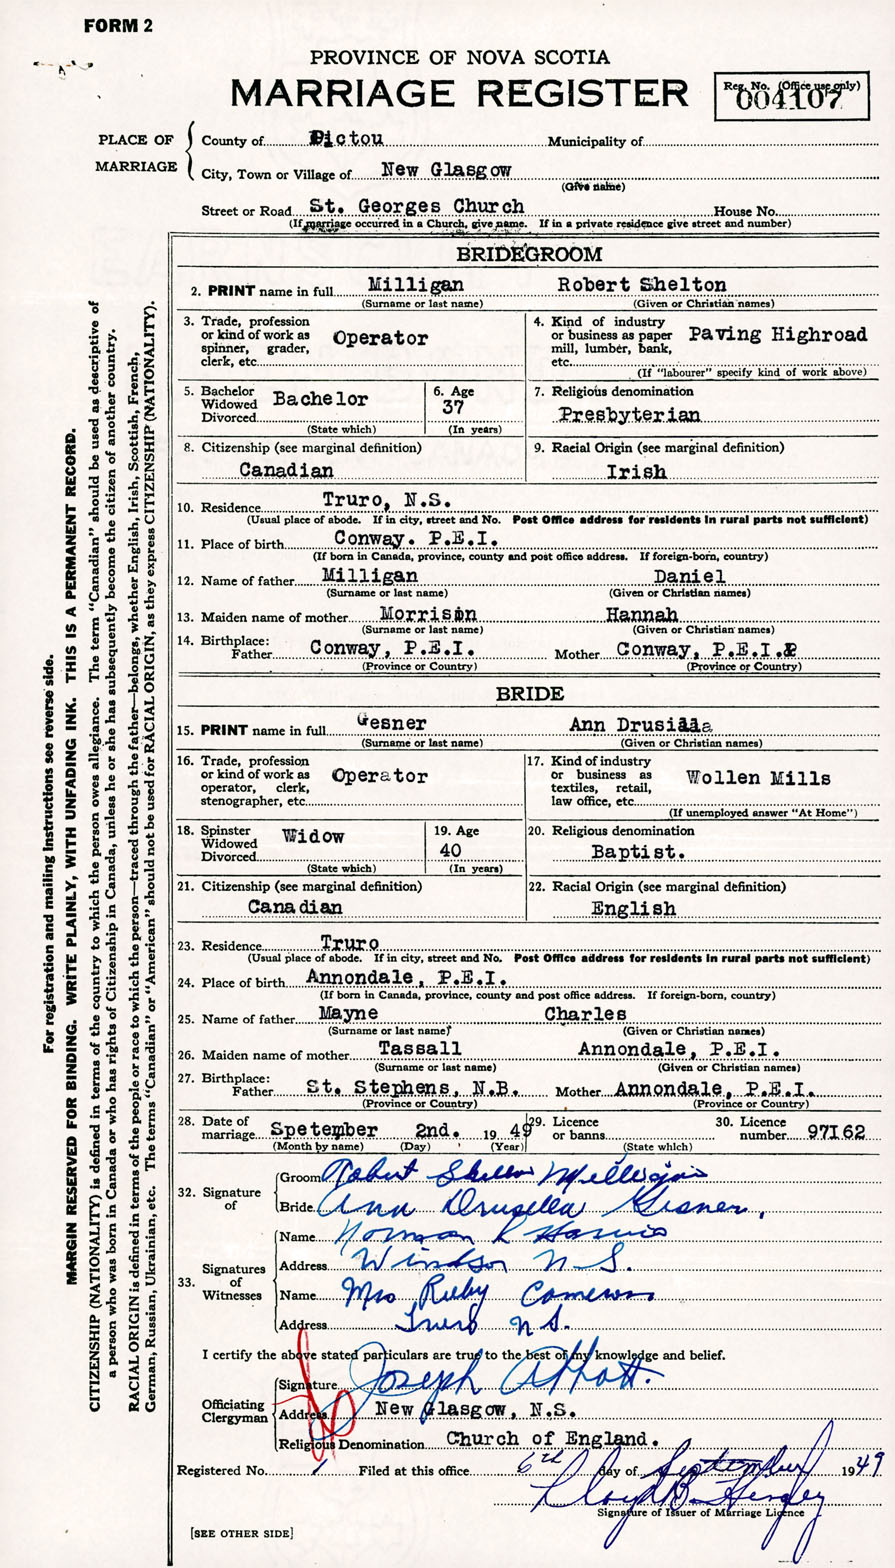 FORM 2
PROVINCE OF NOVA SCOTIA
MARRIAGE REGISTER
Reg. No. (Office use only)
004107
PLACE OF MARRIAGE
County of Pictou Municipality of
City, Town or Village of New Glasgow
(Give name)
Street or Road St. Georges Church House No.
(If marriage occurred in a Church, give name. If in a private residence give street and number)
BRIDEGROOM
2. PRINT name in full Milligan Robert Shelton
(Surname or last name) (Given or Christian names)
3. Trade, profession or kind of work as spinner, grader, clerk, etc. Operator
4. Kind of industry or business as paper mill, lumber, bank, etc. Paving Highroad
(If "labourer" specify kind of work above)
5. Bachelor Widowed Divorced Bachelor
(State which)
6. Age 37
(In years)
7. Religious denomination
Presbyterian
8. Citizenship (see marginal definition)
Canadian
9. Racial Origin (see marginal definition)
Irish
10. Residence Truro, N.S.
(Usual place of abode. If in city, street and No. Post Office address for residents in rural parts not sufficient)
11. Place of birth Conway. P.E.I.
(If born in Canada, province, county and post office address. If foreign-born, country)
12. Name of father Milligan Daniel
(Surname or last name) (Given or Christian names)
13. Maiden name of mother Morrison Hannah
(Surname or last name) (Given or Christian names)
14. Birthplace:
Father Conway, P.E.I. Mother Conway, P.E.I.
(Province or Country) (Province or Country)
BRIDE
15. PRINT name in full Gesner Ann Drusilla
(Surname or last name) (Given or Christian names)
16. Trade, profession or kind of work as operator, clerk, stenographer, etc. Operator
17. Kind of industry or business as textiles, retail, law office, etc. Wollen Mills
(If unemployed answer "At Home")
18. Spinster Widowed Divorced Widow
(State which)
19. Age 40
(In years)
20. Religious denomination
Baptist.
21. Citizenship (see marginal definition)
Canadian
22. Racial Origin (see marginal definition)
English
23. Residence Truro
(Usual place of abode. If in city, street and No. Post Office address for residents in rural parts not sufficient)
24. Place of birth Annondale, P.E.I.
(If born in Canada, province, county and post office address. If foreign-born, country)
25. Name of father Mayne Charles
(Surname or last name) (Given or Christian names)
26. Maiden name of mother Tassall Annondale, P.E.I.
(Surname or last name) (Given or Christian names)
27. Birthplace:
Father St. Stephens, N.B. Mother Annondale, P.E.I.
(Province or Country) (Province or Country)
28. Date of marriage Spetember 2nd. 1949
(Month by name) (Day) (Year)
29. Licence or banns
(State which)
30. Licence number 97162
32. Signature of
Groom Robert Shelton Milligan
Bride Ann Drusilla Gesner.
33. Signatures of Witnesses
Name Norman L Harris
Address Windsor N.S.
Name Mrs Ruby Cameron
Address Truro N.S.
I certify the above stated particulars are true to the best of my knowledge and belief.
Officiating Clergyman
Signature Joseph Abbott.
Address New Glasgow, N.S.
Religious Denomination Church of England.
Registered No. 1 Filed at this office 6th day of September 1949
Lloyd B.
Signature of Issuer of Marriage Licence
[SEE OTHER SIDE]
For registration and mailing instructions see reverse side.
MARGIN RESERVED FOR BINDING. WRITE PLAINLY, WITH UNFADING INK. THIS IS A PERMANENT RECORD.
CITIZENSHIP (NATIONALITY) is defined in terms of the country to which the person owes allegiance. The term "Canadian" should be used as descriptive of
a person who was born in Canada or who has rights of Citizenship in Canada, unless he or she has subsequently become the citizen of another country.
RACIAL ORIGIN is defined in terms of the people or race to which the person—traced through the father—belongs, whether English, Irish, Scottish, French,
German, Russian, Ukrainian, etc. The terms "Canadian" or "American" should not be used for RACIAL ORIGIN, as they express CITIZENSHIP (NATIONALITY).